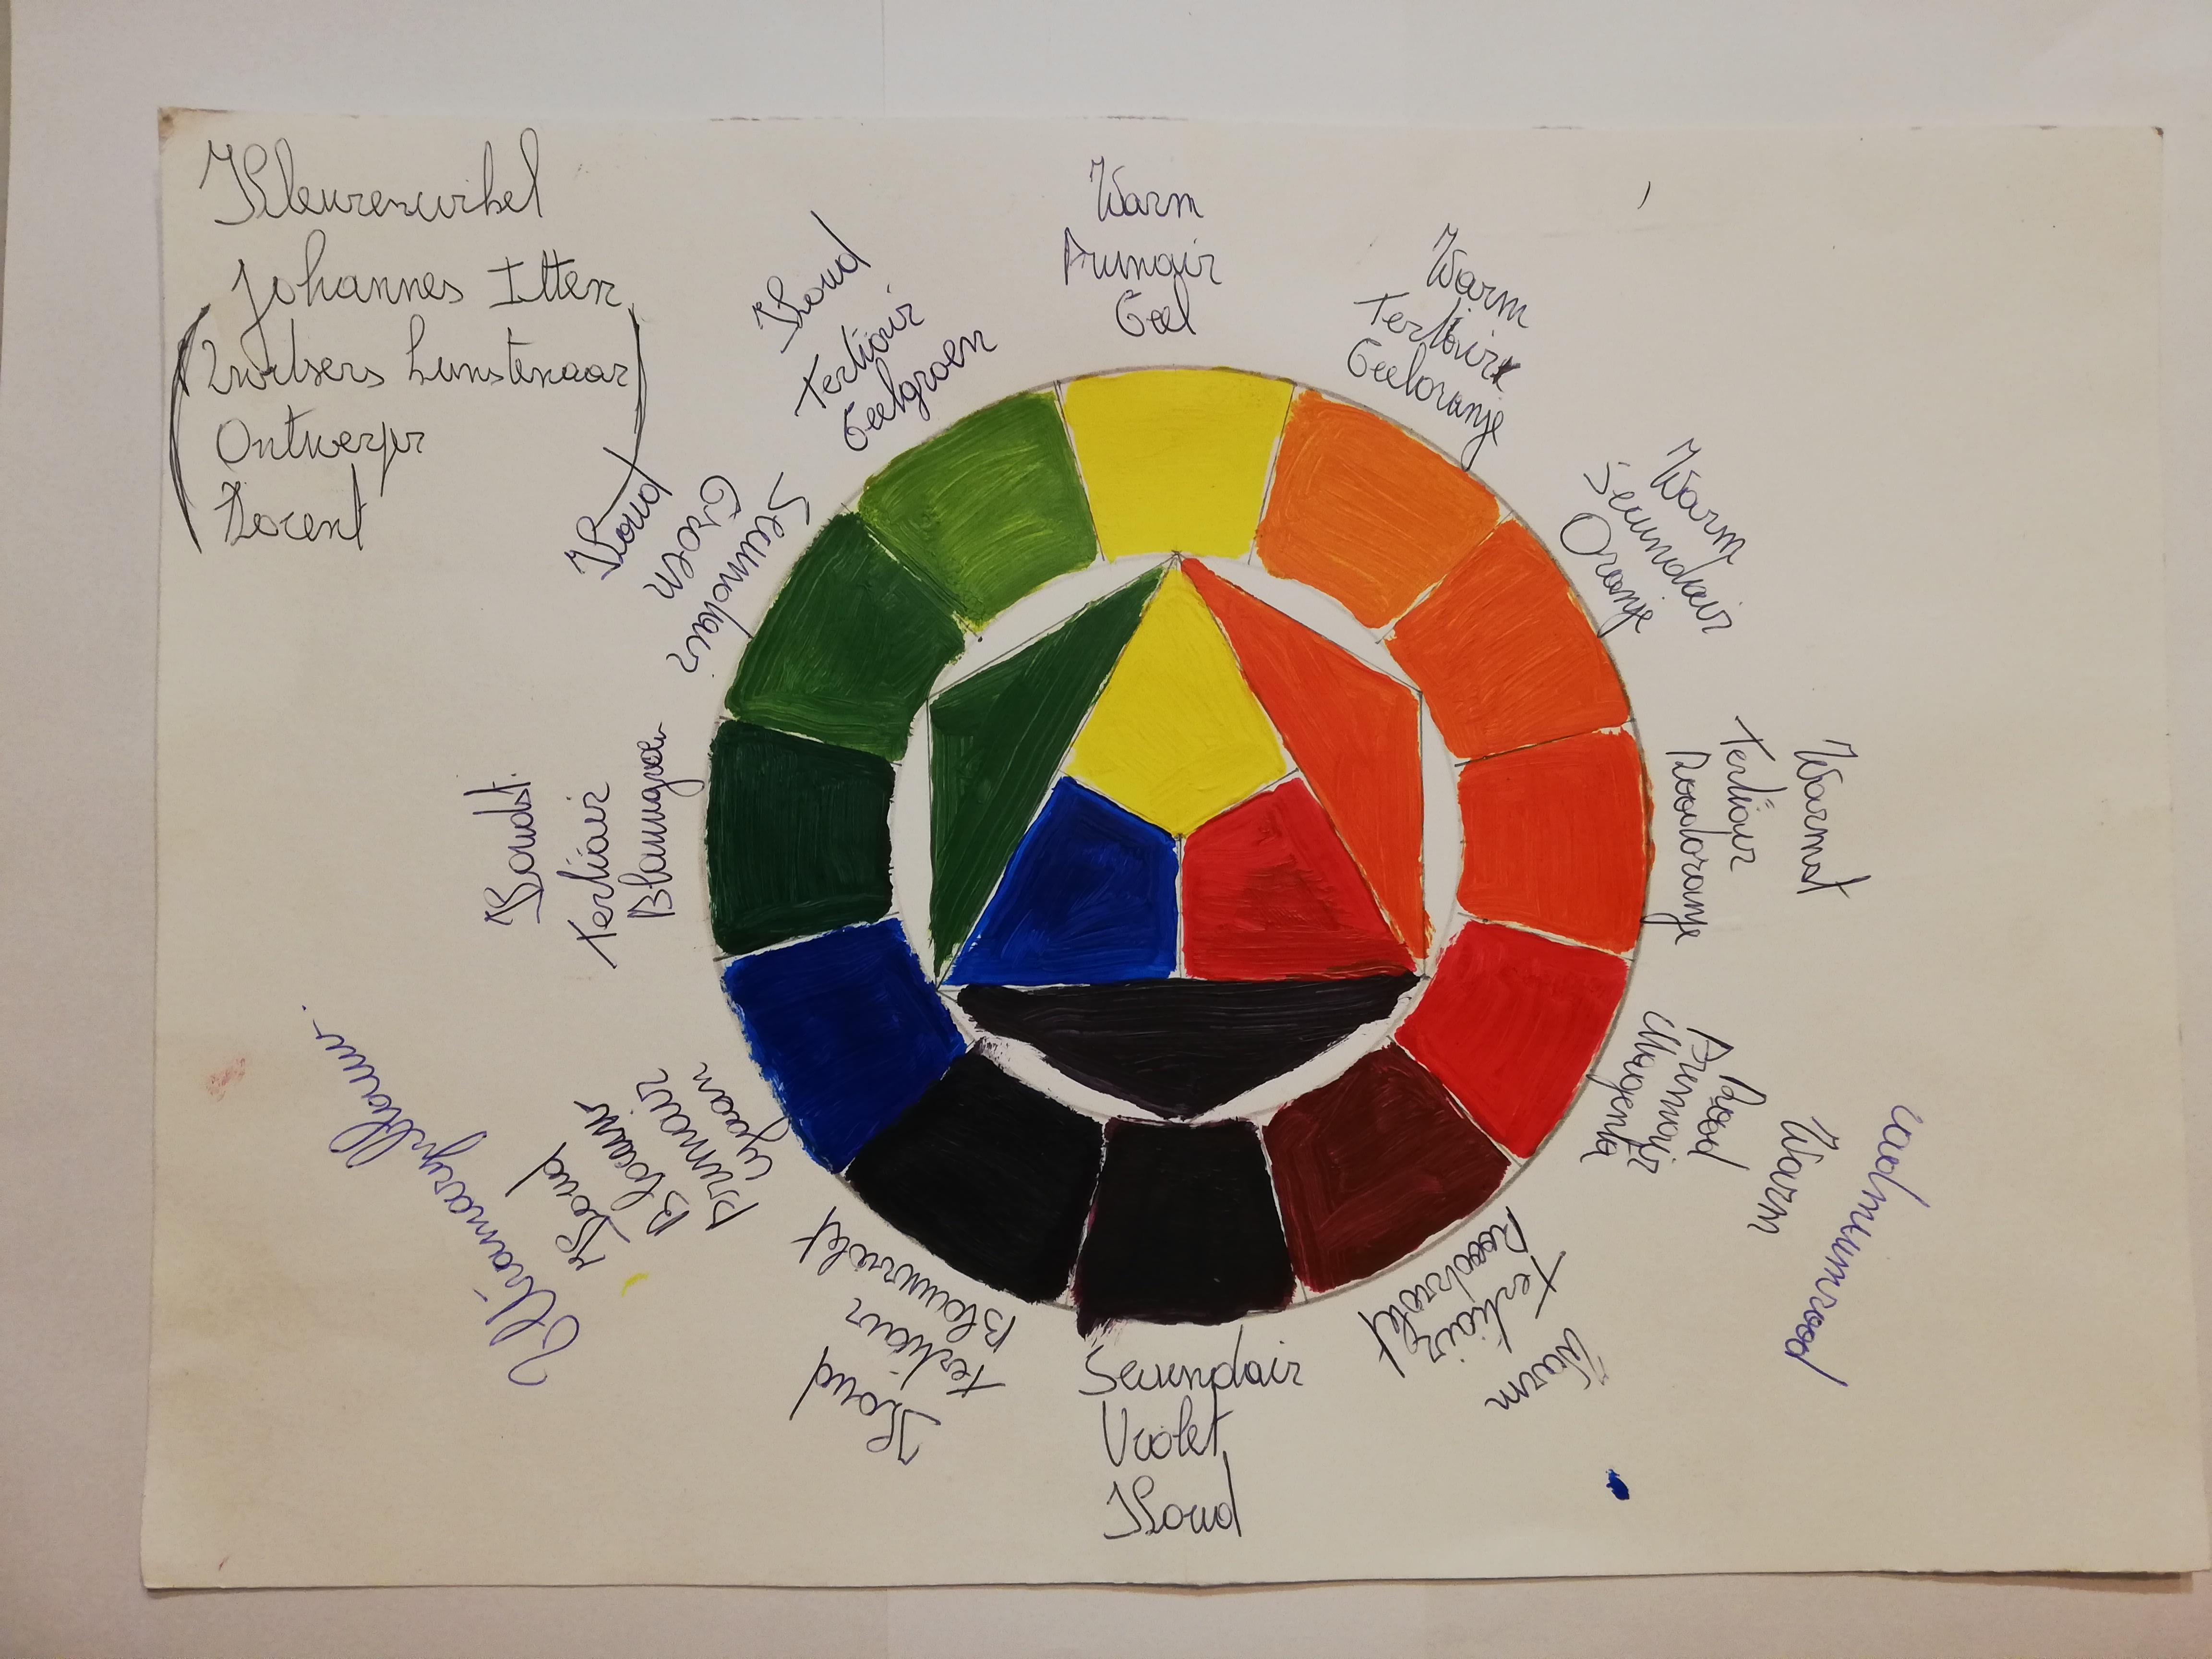 Kleurenwirkel
Johannes Itten
(Zwitsers kunstenaar
Ontwerpr
Docent)
Warm
Primair
Geel
Warm
Tertiair
Geeloranje
Warm
Secundair
Oranje
Warmst
Tertiair
Roodoranje
cadmiumrood
Warm
Rood
Primair
Magenta
Roodviolet
Tertiair
Warm
Secundair
Violet
Koud
Blauwviolet
Tertiair
Koud
Ultramarijnblauw
Koud
Blauw
Primair
Cyaan
Koudst
Tertiair
Blauwgroen
Koud
Groen
Secundair
Koud
Tertiair
Geelgroen